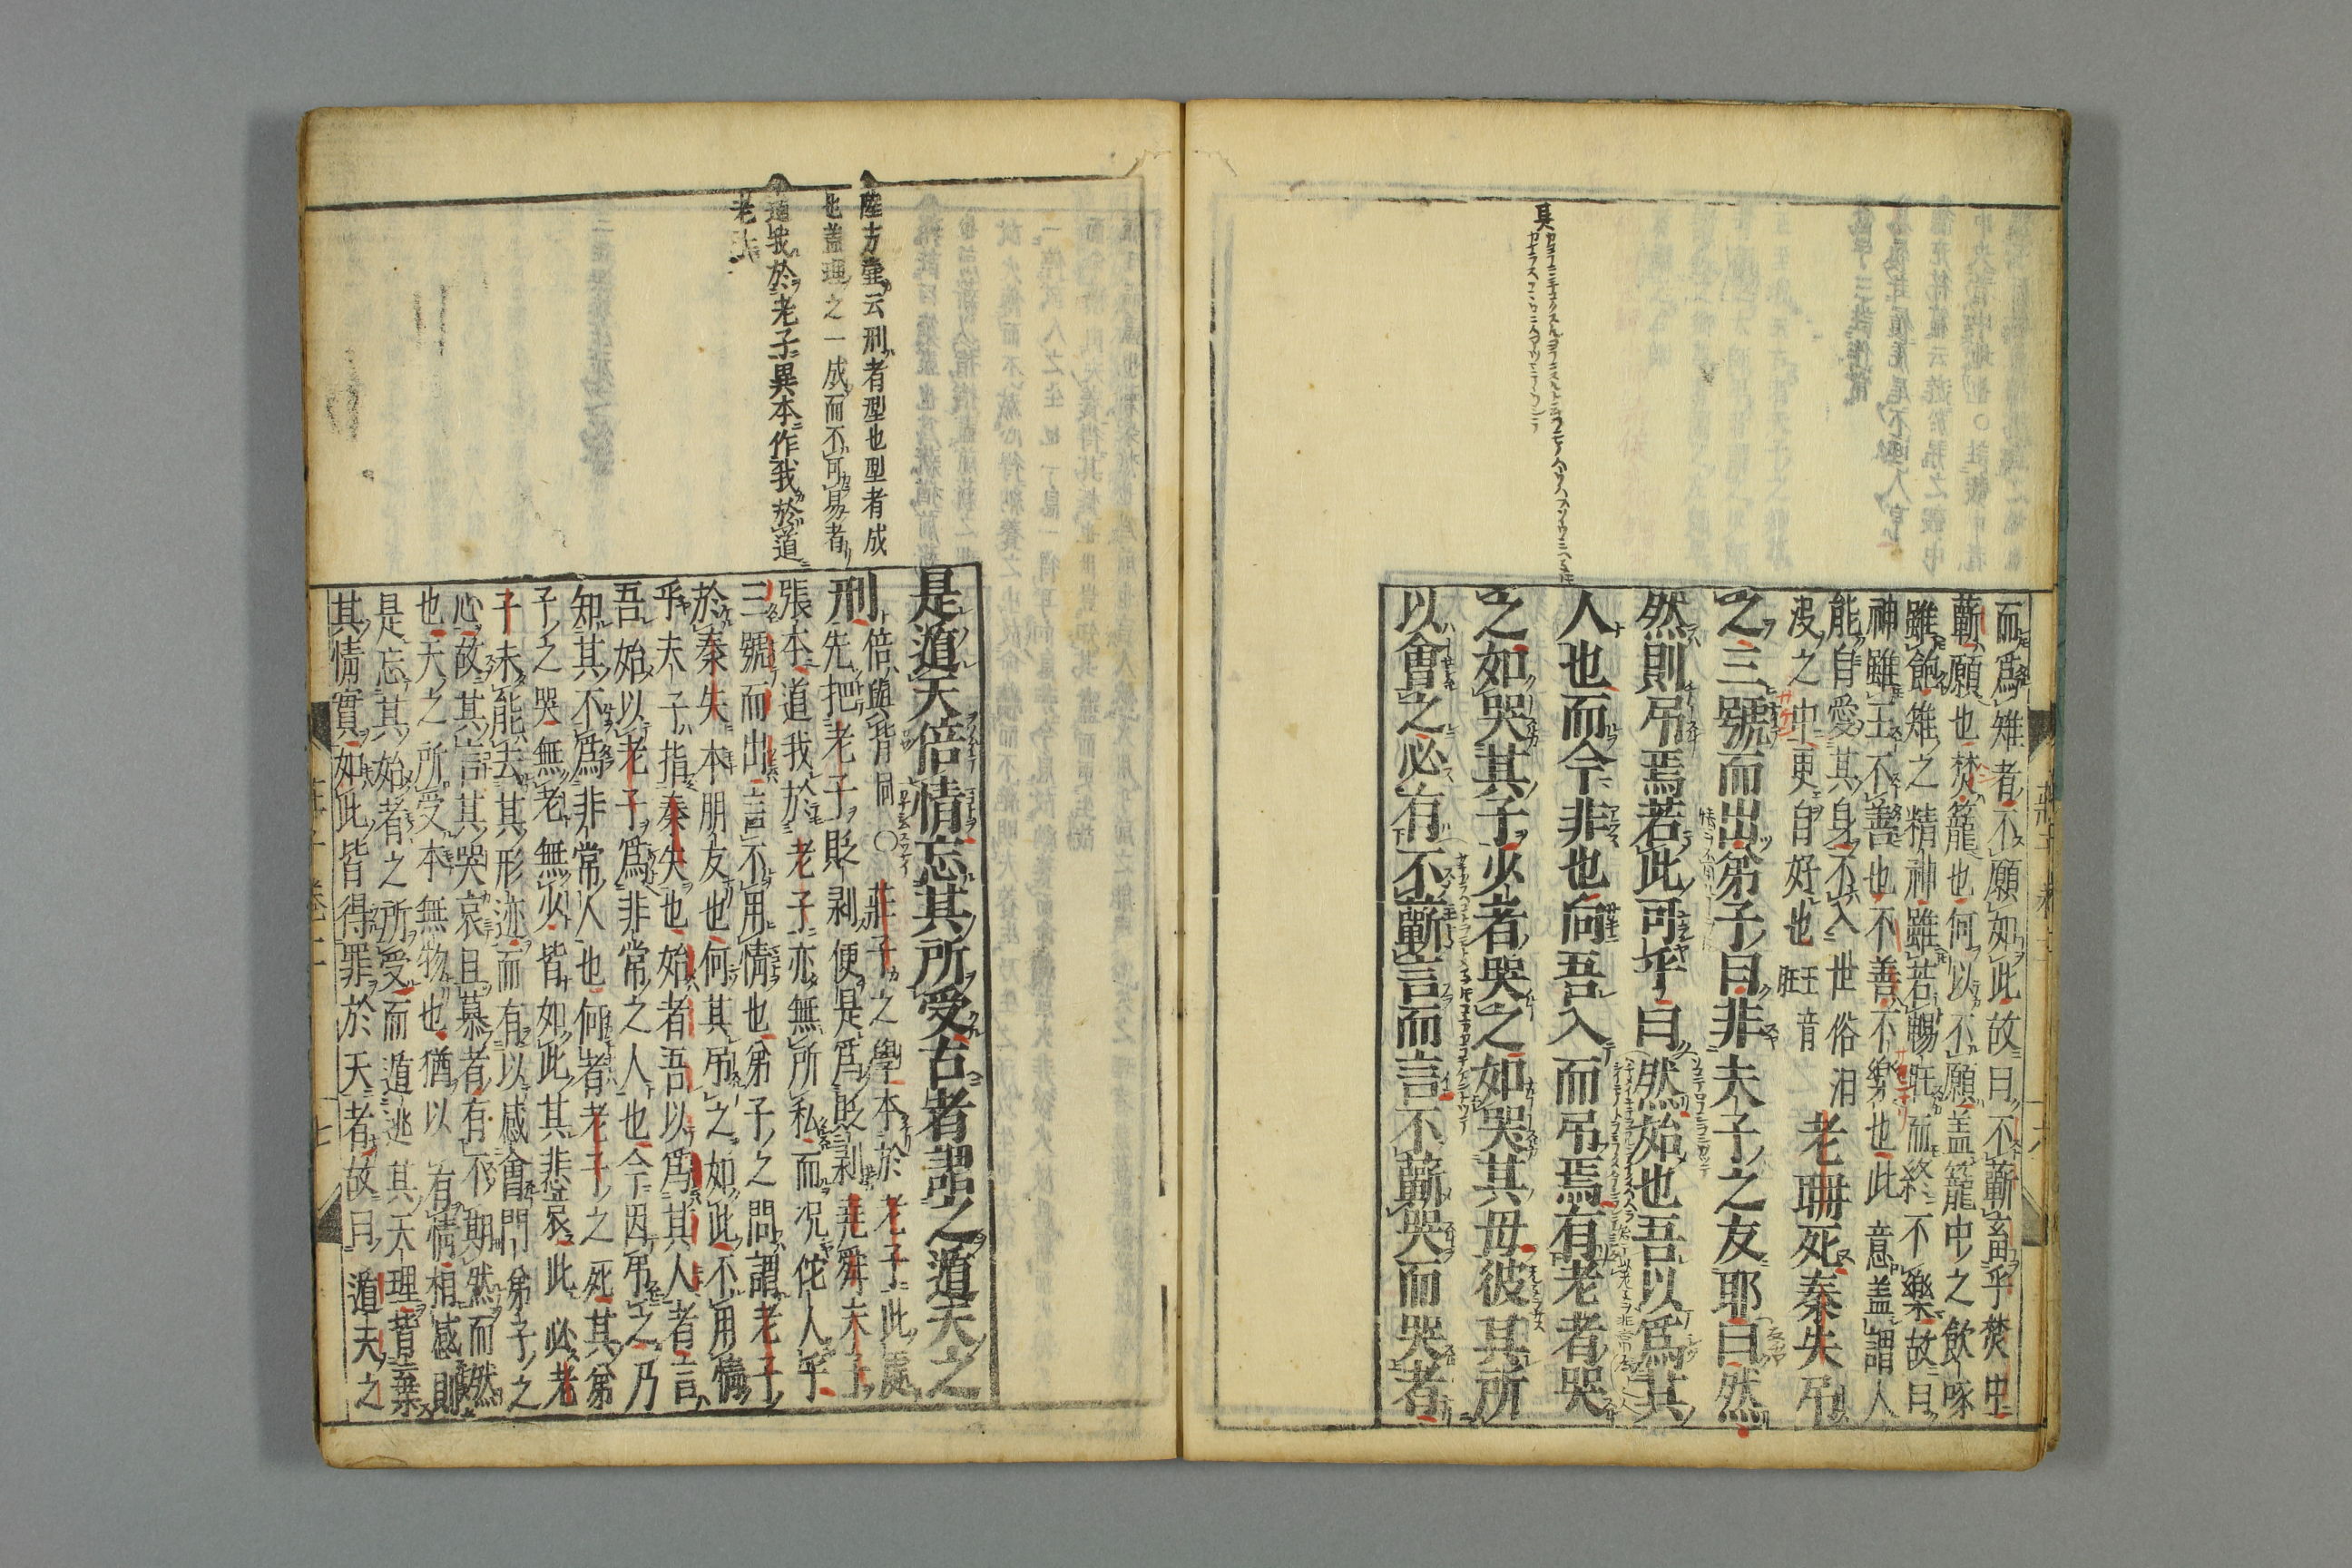 而爲雉者不願如此故曰不蘄畜乎樊中
蘄願也樊籠也何以不願蓋籠中之飲啄
雖飽雉之精神雖若暢旺而終不樂故曰
神雖王不善也不善不樂也此意蓋謂人
能自愛其身不入世俗汨
沒之中更自好也
王音
旺
老聃死秦失弔
之三號而出弟子曰非夫子之友耶曰然
然則弔焉若此可乎曰然始也吾以爲其
人也而今非也向吾入而弔焉有老者哭
之如哭其子少者哭之如哭其母彼其所
以會之必有不蘄言而言不蘄哭而哭者
莊子 卷二
陸方壺云刑者型也型者成
也蓋理之一成而不可易者
道我於老子異本作我於道
老
是遁天倍情忘其所受古者謂之遁天之
刑
倍與背同○莊子之學本於老子此處
先把老子貶剥便是爲貶剥堯舜夫子
張本道我於老子亦無所私而况佗人乎
三號而出言不用情也弟子之問謂老子
於秦失本朋友也何其弔之如此不用情
乎夫子指秦失也始者吾以爲其人者言
吾始以老子爲非常之人也今因弔之乃
知其不爲非常人也何者老子之死其弟
子之哭無老無少皆如此其悲哀此必老
子未能去其形迹而有以感會門弟子之
心故其言其哭哀且慕者有不期然而然
也天之所受本無物也猶以有情相感則
是忘其始者之所受而遁逃其天理背棄
其情實如此皆得罪於天者故曰遁天之